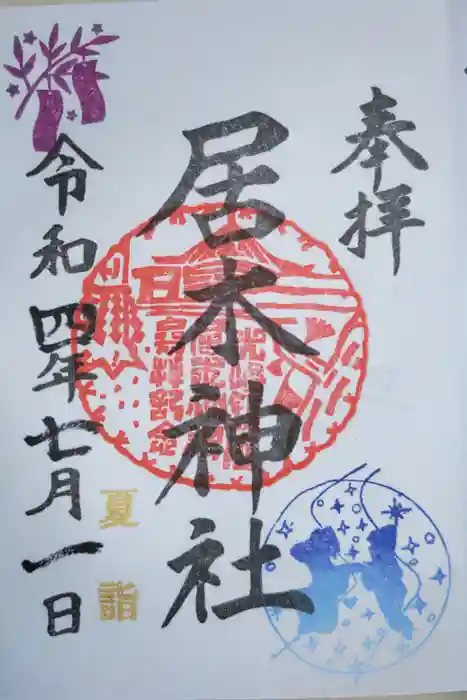 奉拝
居木神社
令和四年七月一日
夏詣